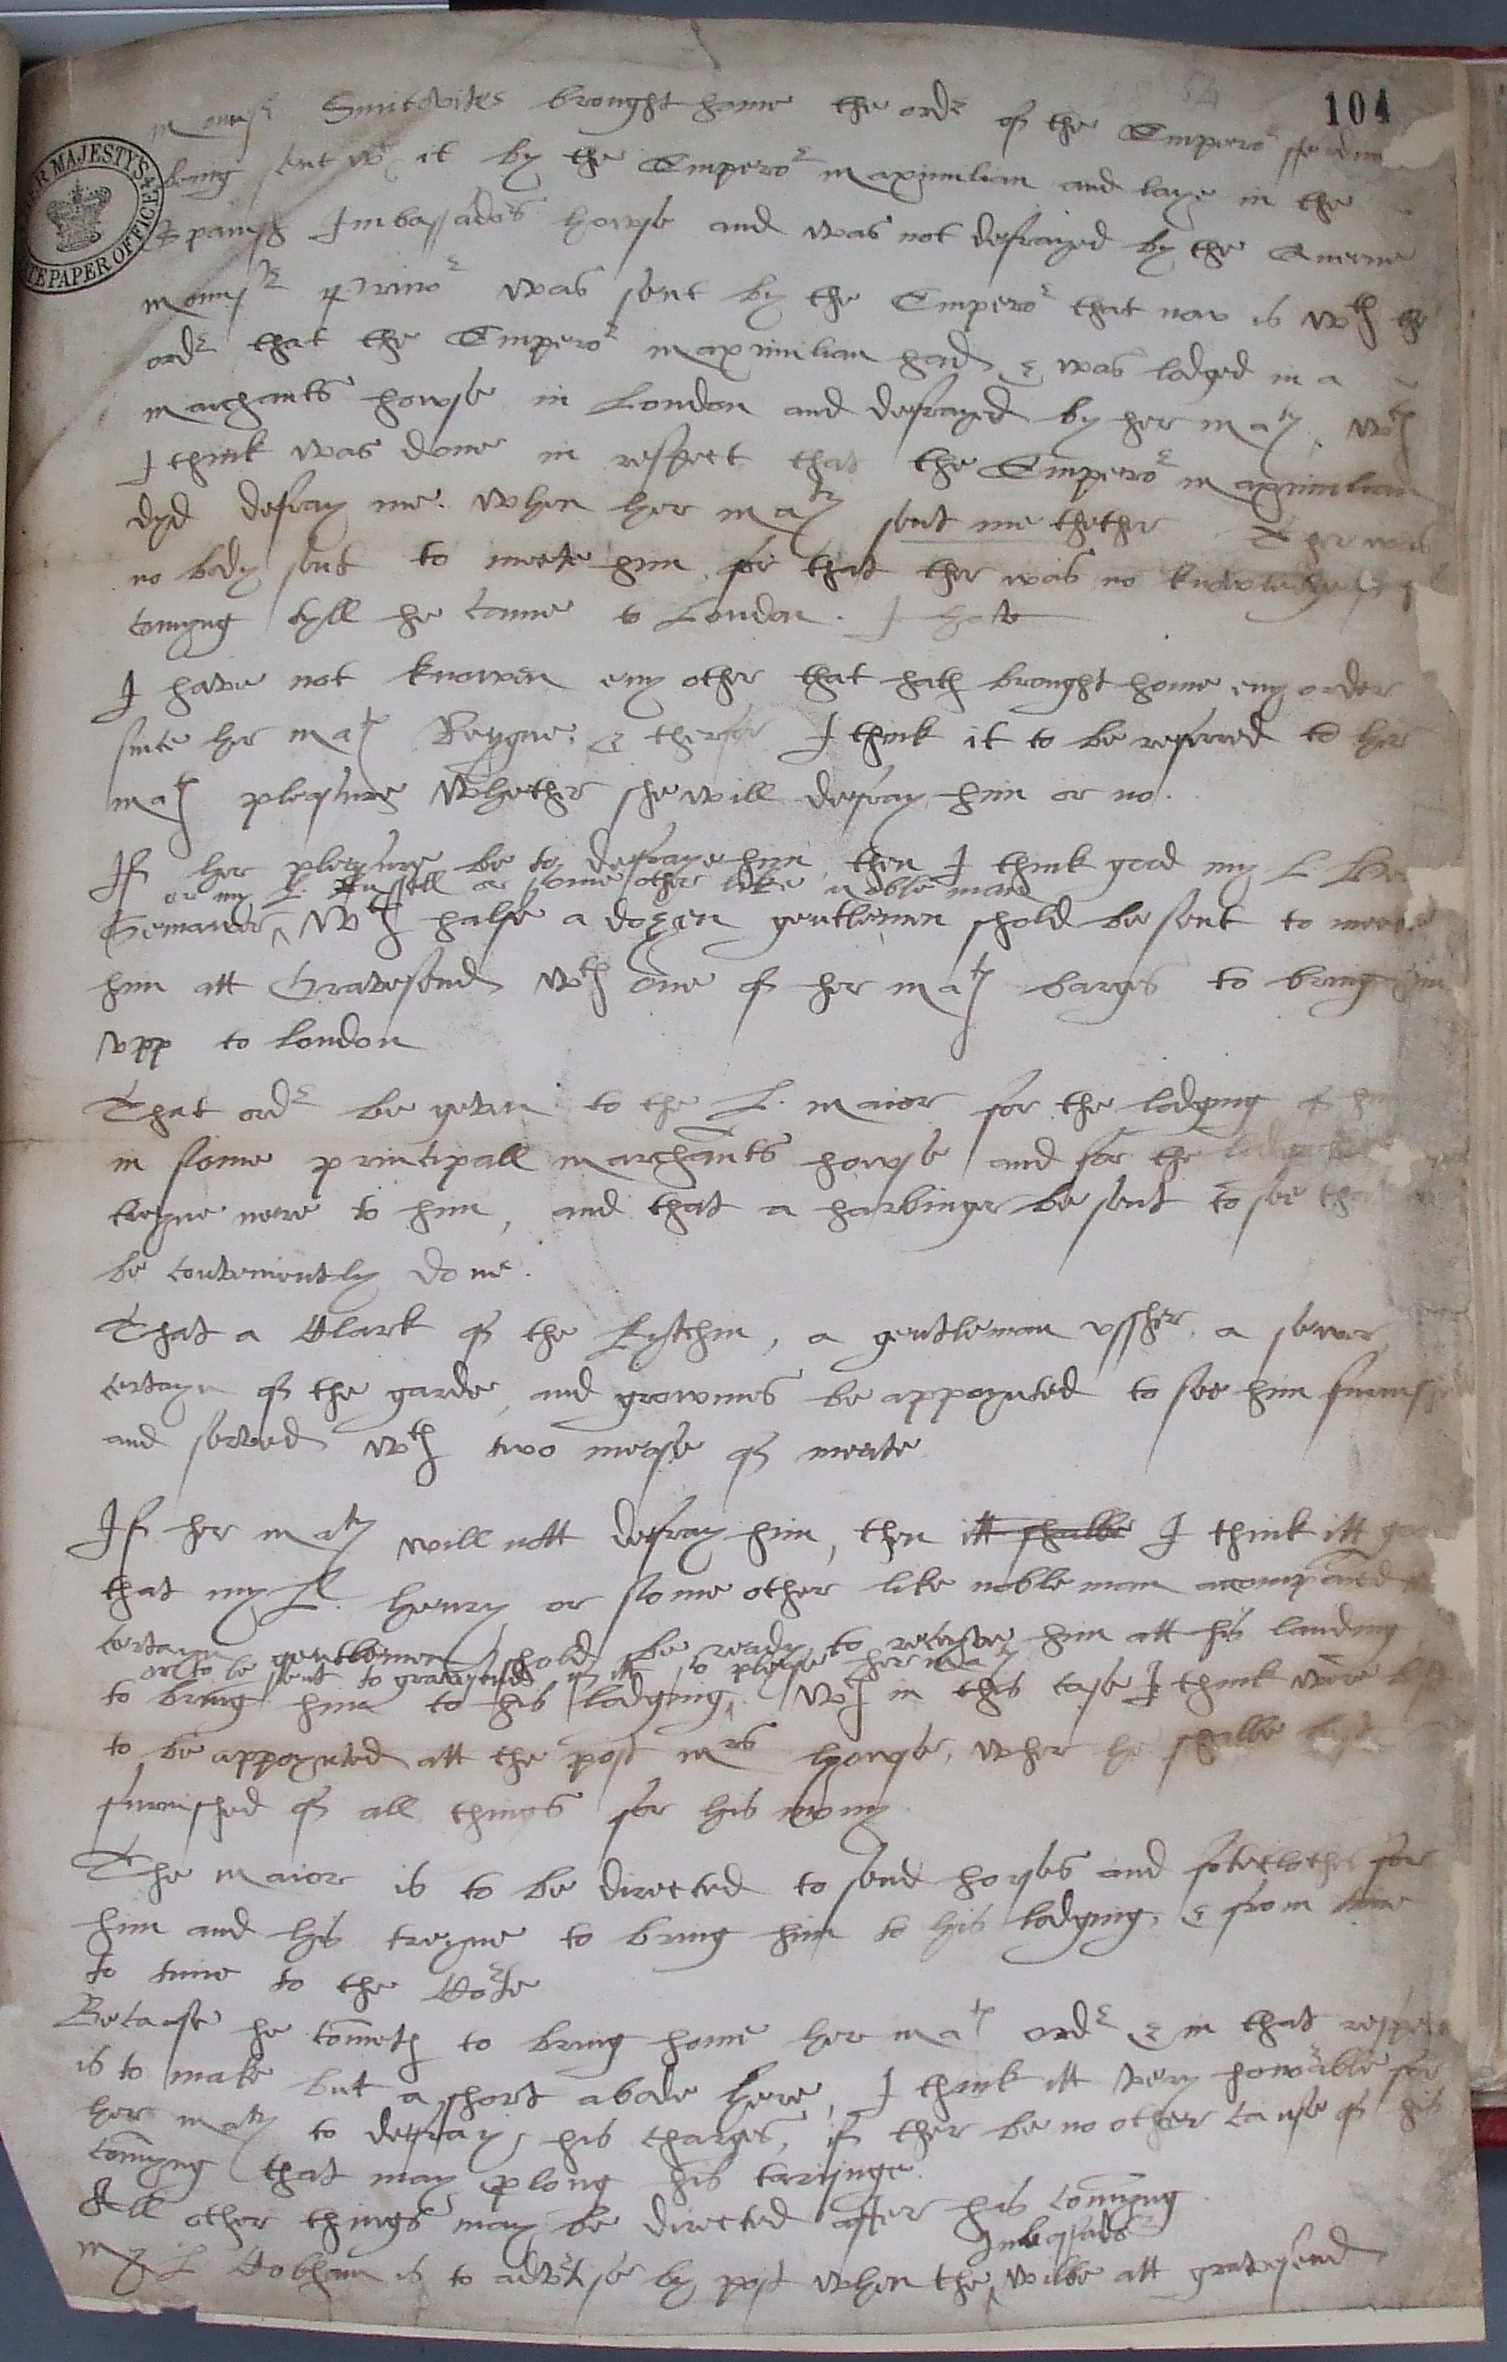 104
monsr Smitovites brought home the ordr of the Emperor
being sent wt it by the Emperor maximilian and laye in the
Spanish Imbassadors howse and was not defrayed by the Queene
monsr Prinor was sent by the Emperor that now is wth the
ordr that the Emperor maximilian had, & was lodged in a
marchants howse in London and defrayed by her maty. wch
I think was done in respect that the Emperor maximilian
dyd defray me. when her maty sent me thether Ther was
no body sent to meete him for that ther was no knowledge
comyng tyll he came to London. I have
I have not knowen eny other that hath brought home eny order
since her maty Reygne, & therfor I think it to be referred to her
maty pleasure whether she will defray him or no.
If her pleasure be to defraye him, then I think good my L
or my L. Russell or some other like noble man
Semaier, wth halfe a dozen gentlemen shold be sent to meete
him att Gravesend wth one of her maty barges to bring him
vpp to London
That ordr be geven to the L. maior for the lodgyng of
in some principall marchants howse and for the
treyne nere to him, and that a harbinger be sent to see that
be conveniently done.
That a Clark of the Kytchin, a gentleman vssher, a sewer,
certayn of the garde, and growmes be appoynted to see him
and served wth two messe of meate
If her maty will nott defray him, then itt shalbe I think itt
that my L. Henry or some other like noble man accompaned
certayn gentlemen shold be ready to receyve him att his landing
or to be sent to gravesend if itt so please her maty
to bring him to his lodging. wch in this case I think were
to be appoynted att the post mrs howse, wher he shalbe
furnished of all things for his mony
The maior is to be directed to send horses and foteclothes for
him and his treyne to bring him to his lodging, & from time
to time to the Corte
Because he cometh to bring home her maty ordr & in that respect
is to make but a short abode here, I think itt very honorable for
her maty to defray his charges, if ther be no other cause of his
comyng that may plong his taryinge.
All other things may be directed after his comyng.
Imbassador
my L Cobham is to advertise by post when the wilbe att gravesend